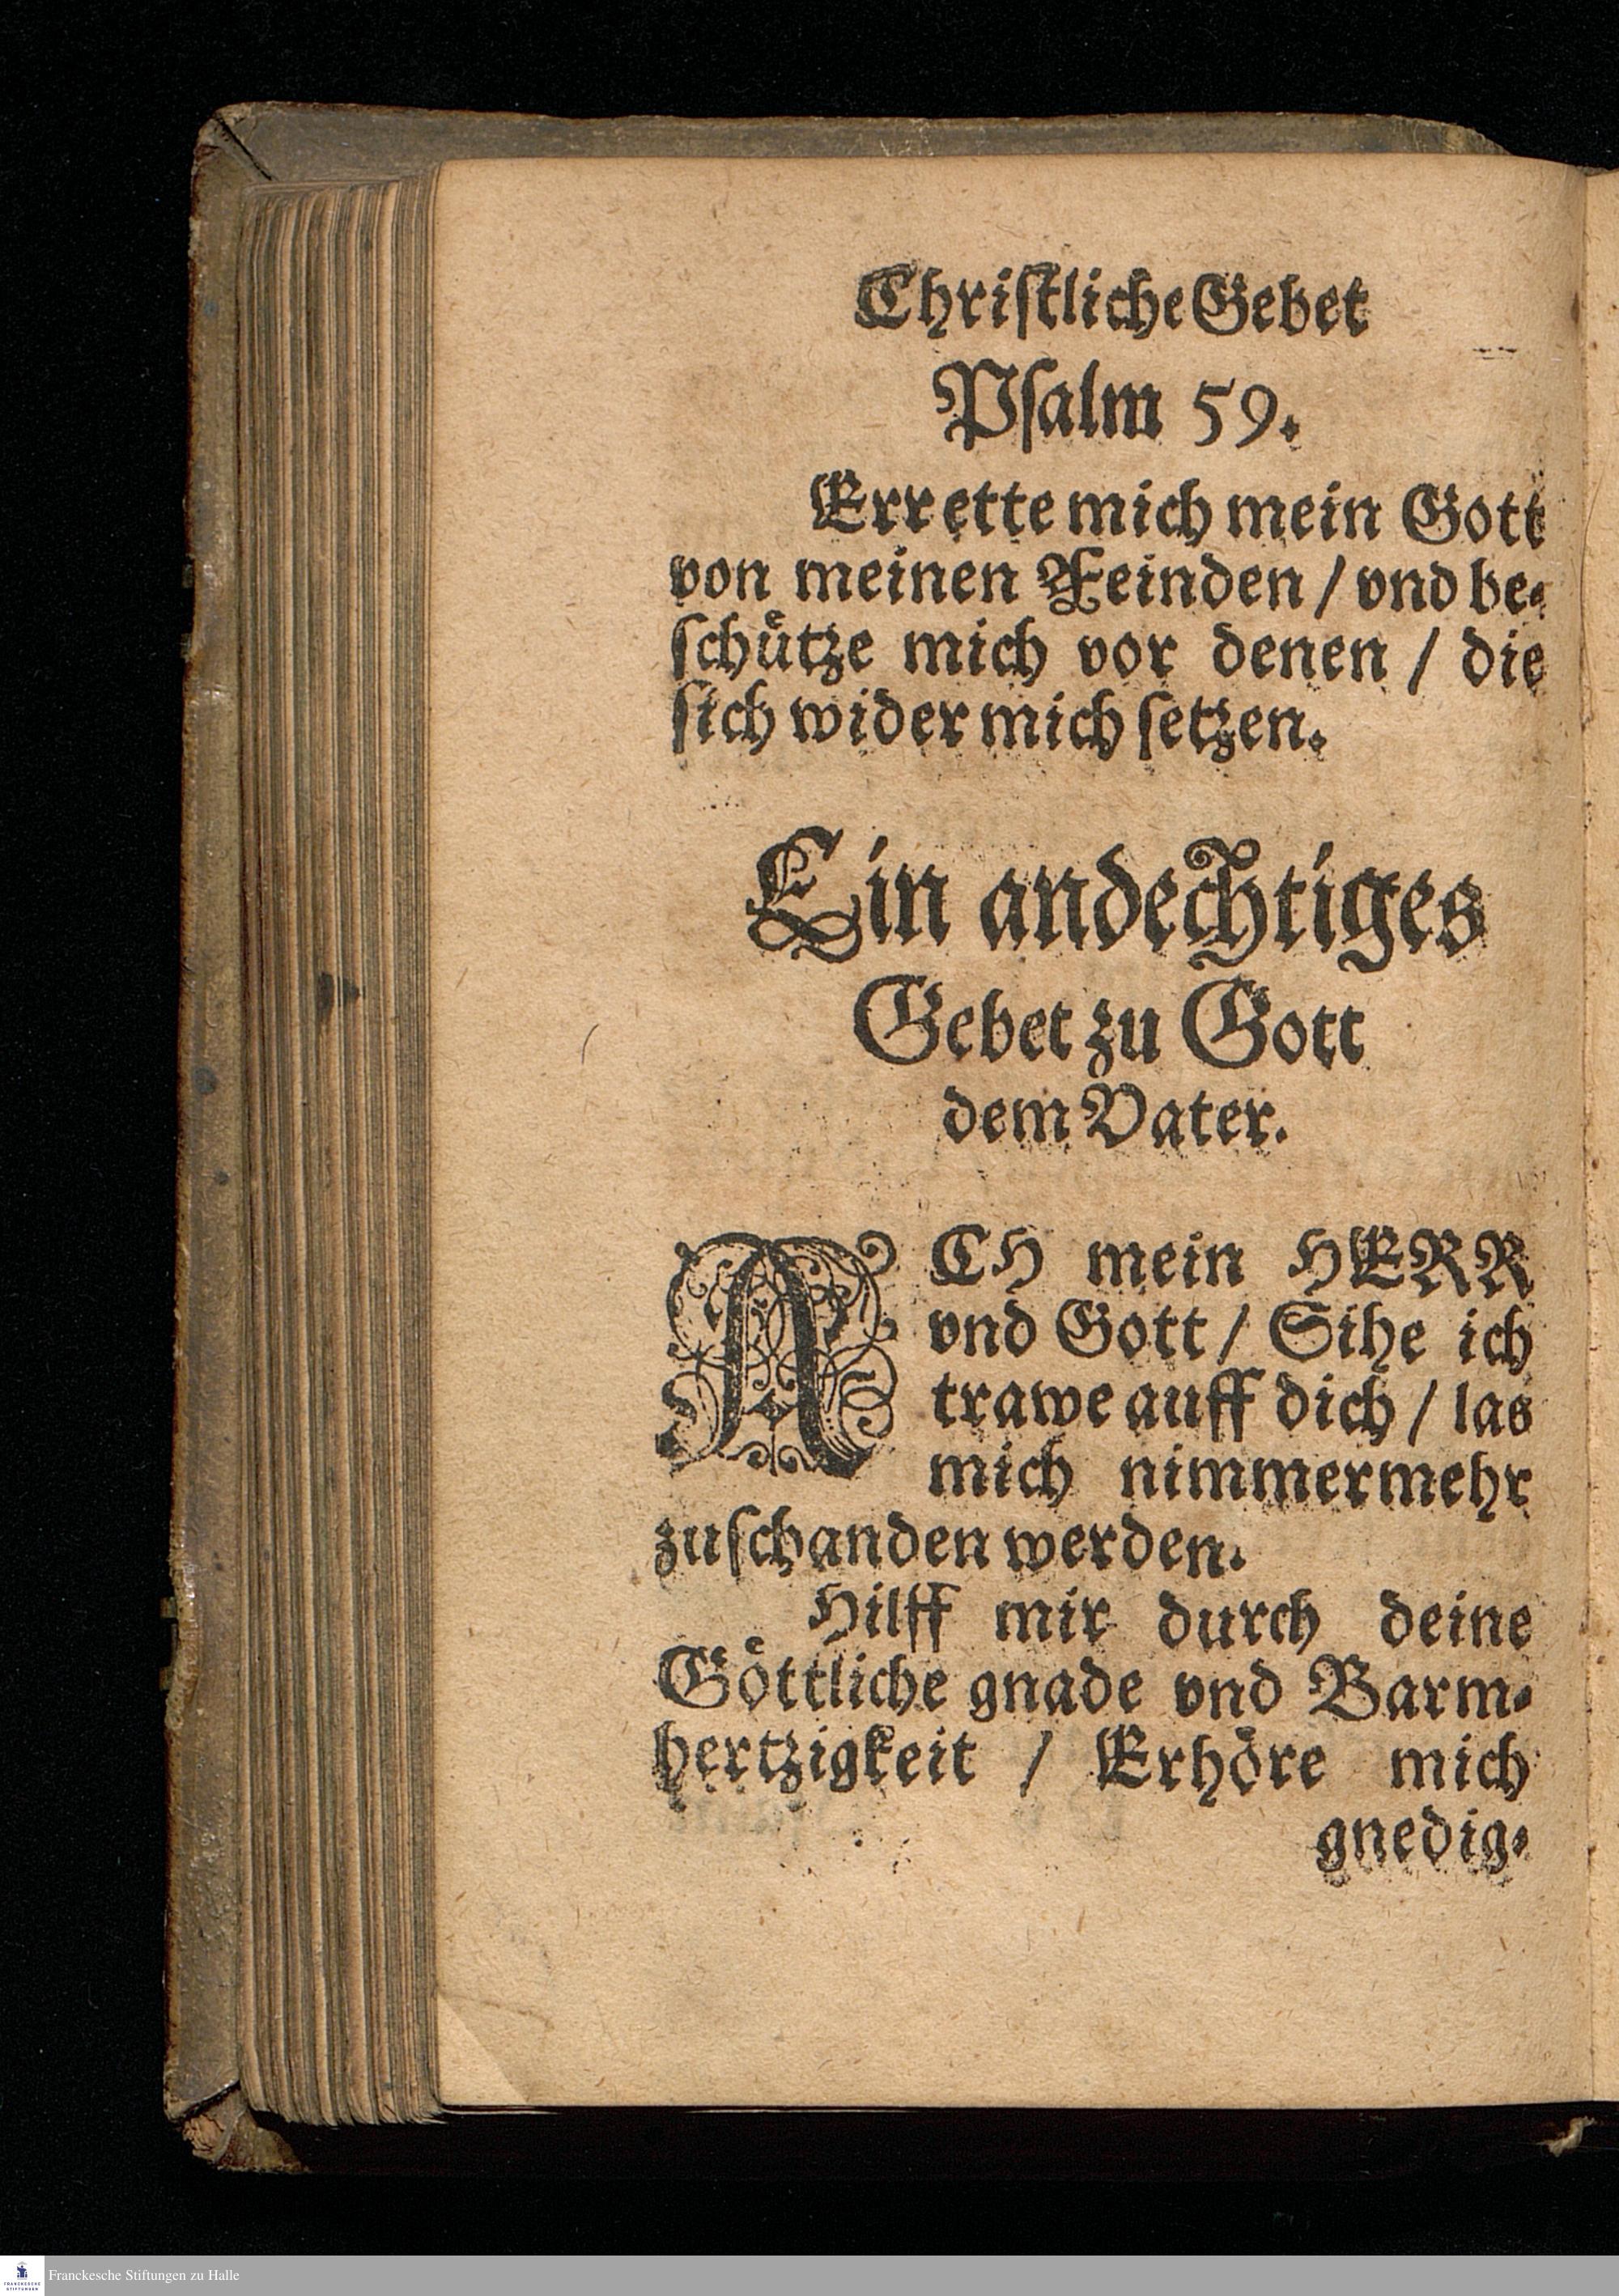 Christliche Gebet
Psalm 59.
Errette mich mein Gott
von meinen Feinden / vnd be-
schuͤtze mich vor denen / die
sich wider mich setzen.
Ein andechtiges
Gebet zu Gott
dem Vater.
ACH mein HERR
vnd Gott / Sihe ich
trawe auff dich / las
mich nimmermehr
zuschanden werden.
Hilff mir durch deine
Goͤttliche gnade vnd Barm-
hertzigkeit / Erhoͤre mich
gnedig-
Franckesche Stiftungen zu Halle
FRANCKESCHE
STIFTUNGEN